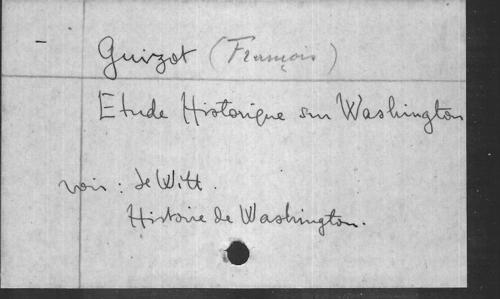 - Guizot (François)
Etude Historique sur Washington
voir : de Witt.
Histoire de Washington.